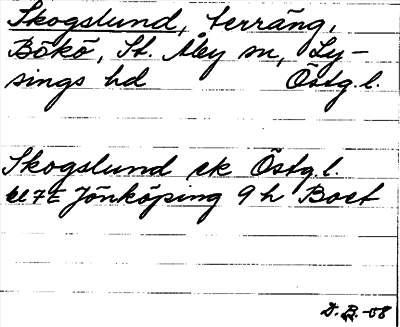 Skogslund, terräng,
Bökö, St. Åby sn, Ly-
sings hd Östg.l.
Skogslund ek Östg.l.
bl 7E Jönköping 9 h Boet
D.B.-58